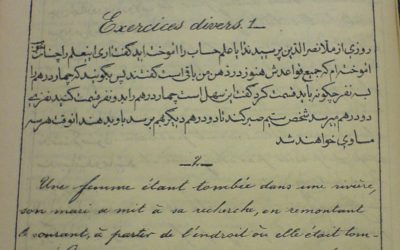 Exercices divers. 1
روزی از ملا نصرالدین پرسیدند آیا علم حساب را آموخته‌اید گفت آری این علم را چنان
آموخته‌ام که جمیع قواعدش هنوز در ذهن من باقی است گفتند پس بگو بدانیم که چهار درهم را
به نفر چگونه باید قسمت کرد گفت این سهل است چهار درهم را بدو نفر قسمت کنید نفری
دو درهم میرسد شخص سیم صبر کند تا دو درهم دیگر هم برسد باو بدهند آنوقت هر سه
مساوی خواهند شد
2.
Une femme étant tombée dans une rivière,
son mari a mit à sa recherche, en remontant
le courant, à partir de l'endroit où elle était tom-